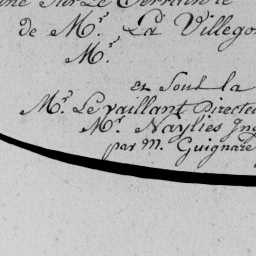 Sur Le Terrain le
de M.r La Villego
M.r
et Sont la
M.r Le vaillant Directe
M.r Naylies Ing
par M. Guignare